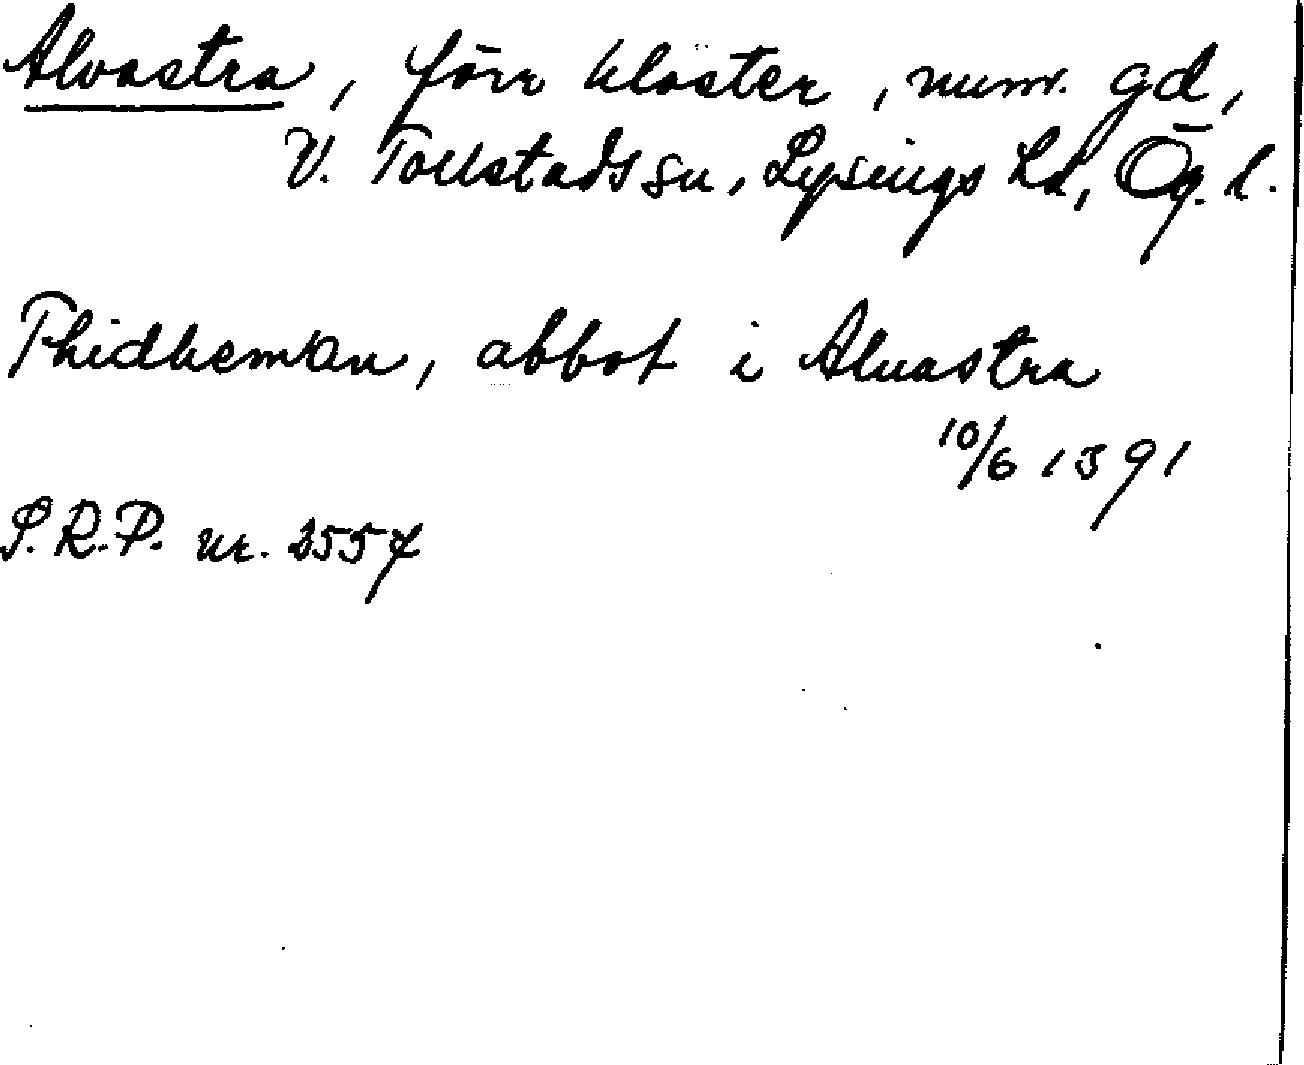 Alvastra, förr kloster, num. gd,
V. Tollstads sn, Lysings hd, Ög. l.
Thidheman, abbot i Alvastra
10/6 1391
S.R.P. nr. 2557